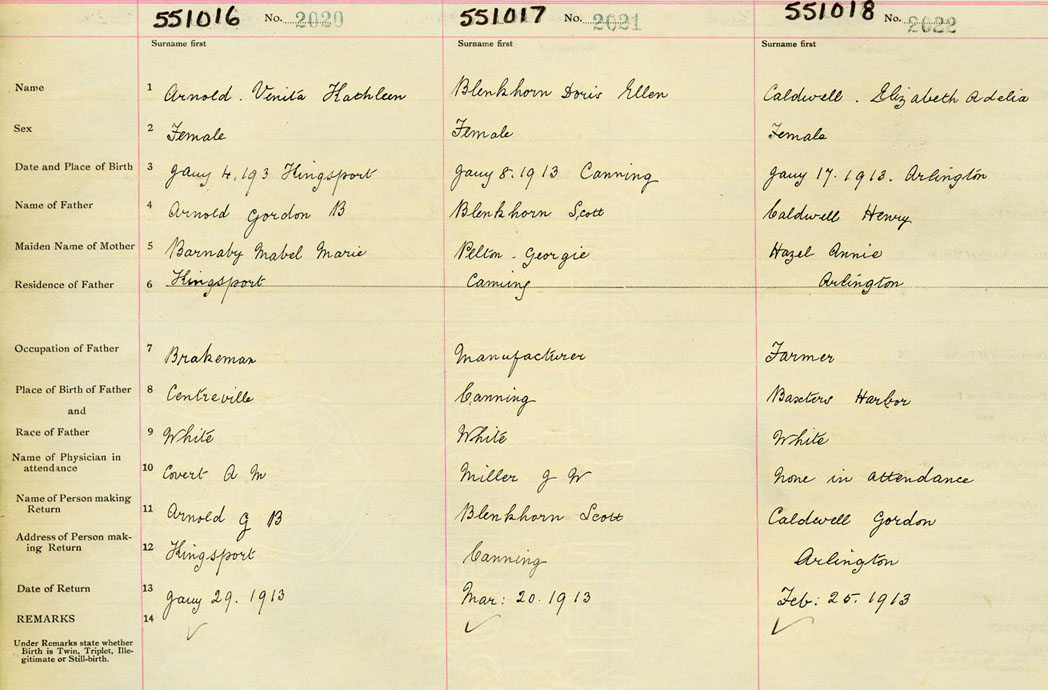 551016 No. 2020 551017 No. 2021 551018 No. 2022
Surname first Surname first Surname first
Name 1 Arnold. Venita Kathleen Blenkhorn Doris Ellen Caldwell. Elizabeth Adelia
Sex 2 Female Female Female
Date and Place of Birth 3 Jany 4, 193 Kingsport Jany 8. 1913 Canning Jany 17. 1913. Arlington
Name of Father 4 Arnold Gordon B Blenkhorn Scott Caldwell Henry
Maiden Name of Mother 5 Barnaby Mabel Marie Pelton. Georgie Hazel Annie
Residence of Father 6 Kingsport Canning Arlington
Occupation of Father 7 Brakeman Manufacturer Farmer
Place of Birth of Father 8 Centreville Canning Baxters Harbor
and
Race of Father 9 White White White
Name of Physician in
attendance 10 Covert A M Miller J W None in attendance
Name of Person making
Return 11 Arnold G B Blenkhorn Scott Caldwell Gordon
Address of Person mak-
ing Return 12 Kingsport Canning Arlington
Date of Return 13 Jany 29. 1913 Mar: 20. 1913 Feb: 25. 1913
REMARKS 14
Under Remarks state whether
Birth is Twin, Triplet, Ille-
gitimate or Still-birth.